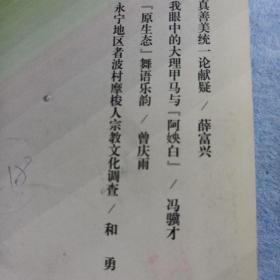 真善美统一论献疑 / 薛富兴
我眼中的大理甲马与『阿姎白』 / 冯骥才
『原生态』舞语乐韵 / 曾庆雨
永宁地区者波村摩梭人宗教文化调查 / 和 勇